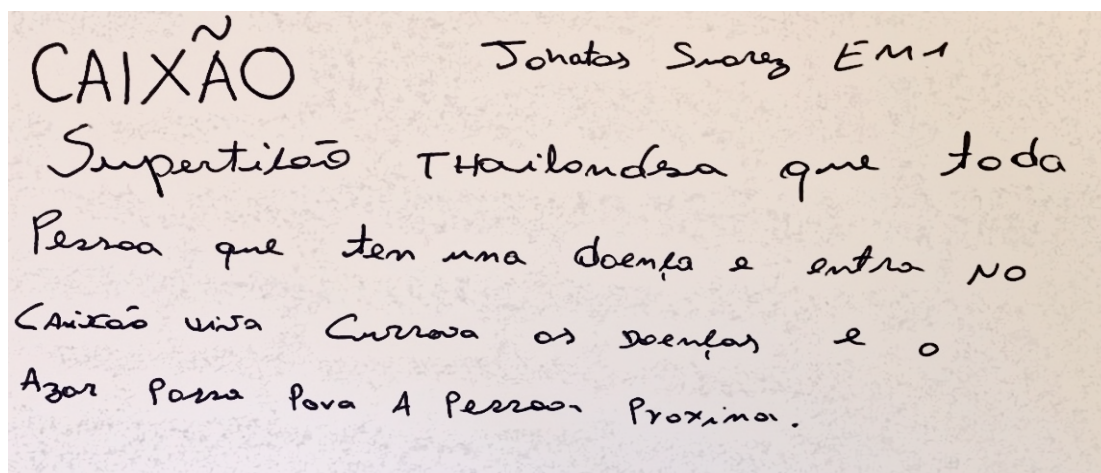 CAIXÃO
Jonatas Suarez EM1
Supertisão THailandesa que toda
Pessoa que tem uma doença e entra NO
CAixão viva Currava as Doenças e o
Azar Passa Para A Pessoa Proxima.